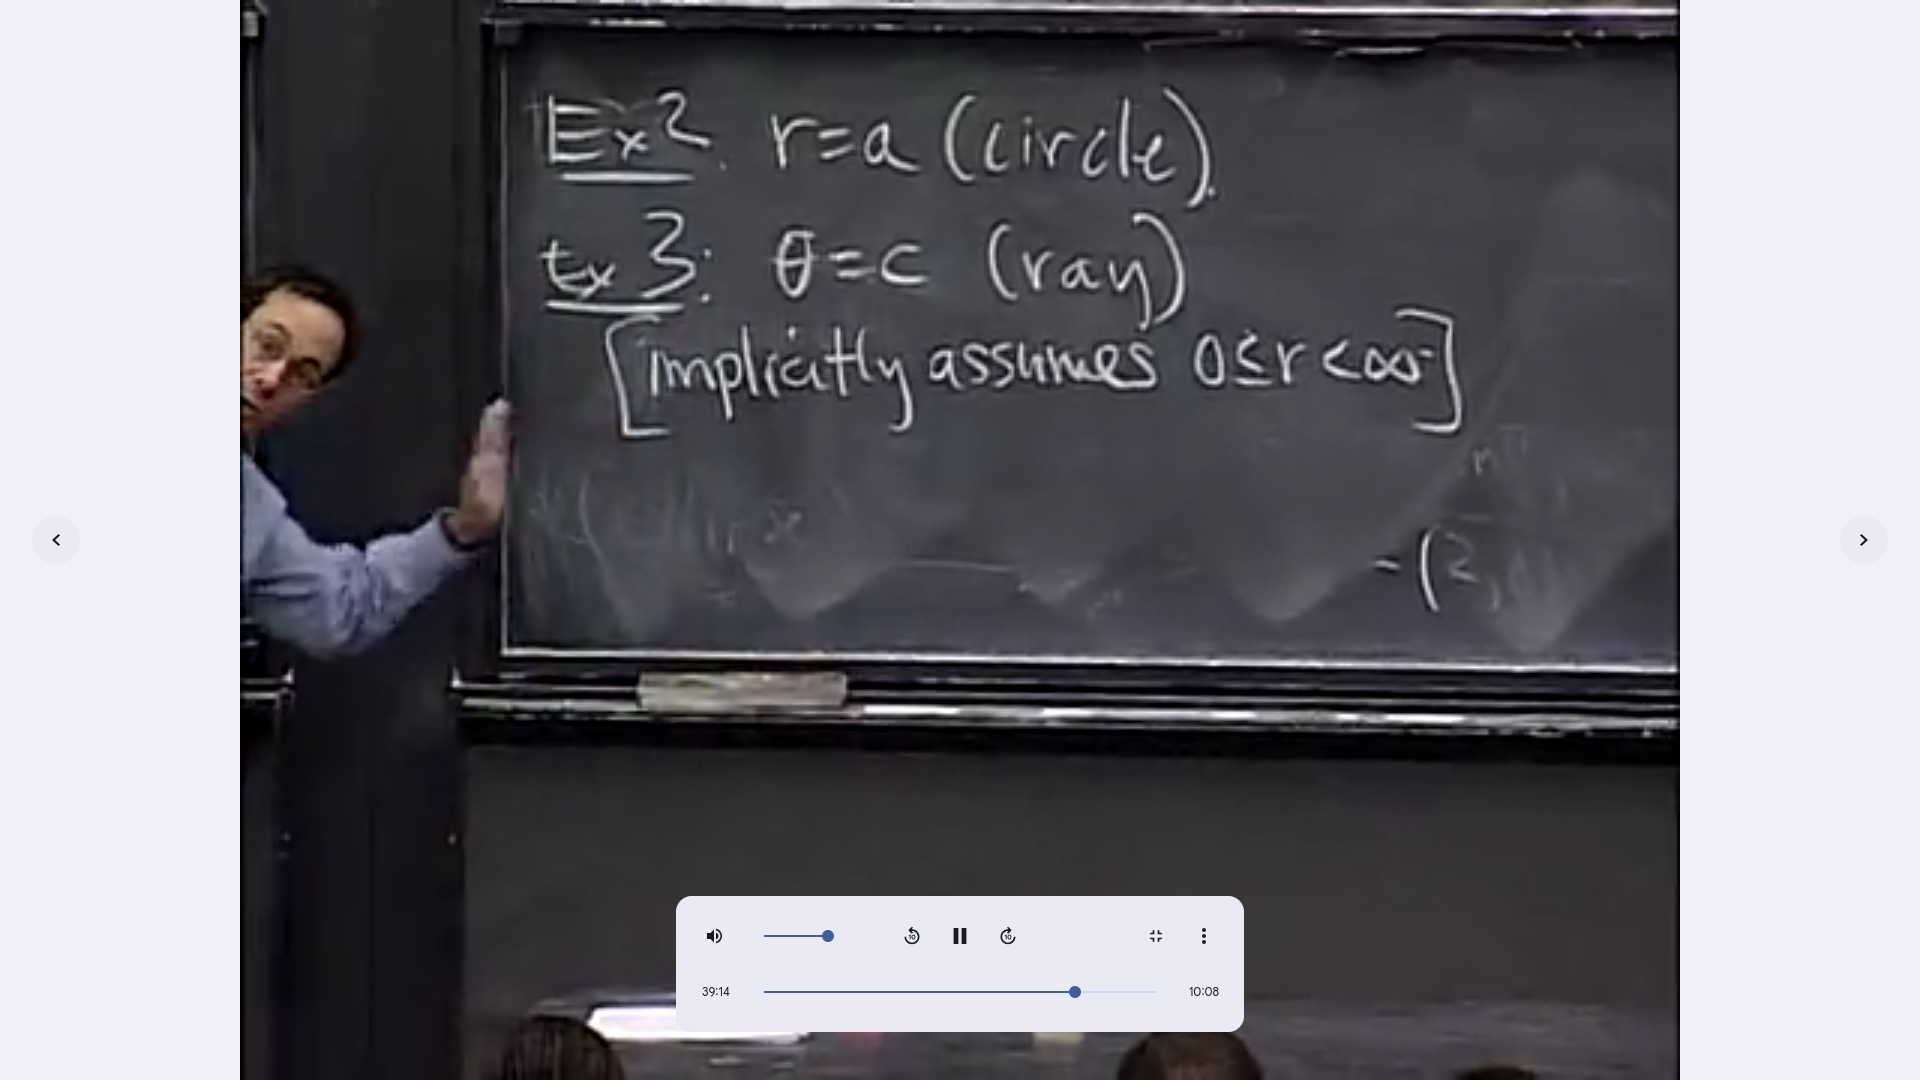 Ex2. r=a (circle).
Ex 3: θ=c (ray)
[implicitly assumes 0≤r<∞]
39:14
10:08